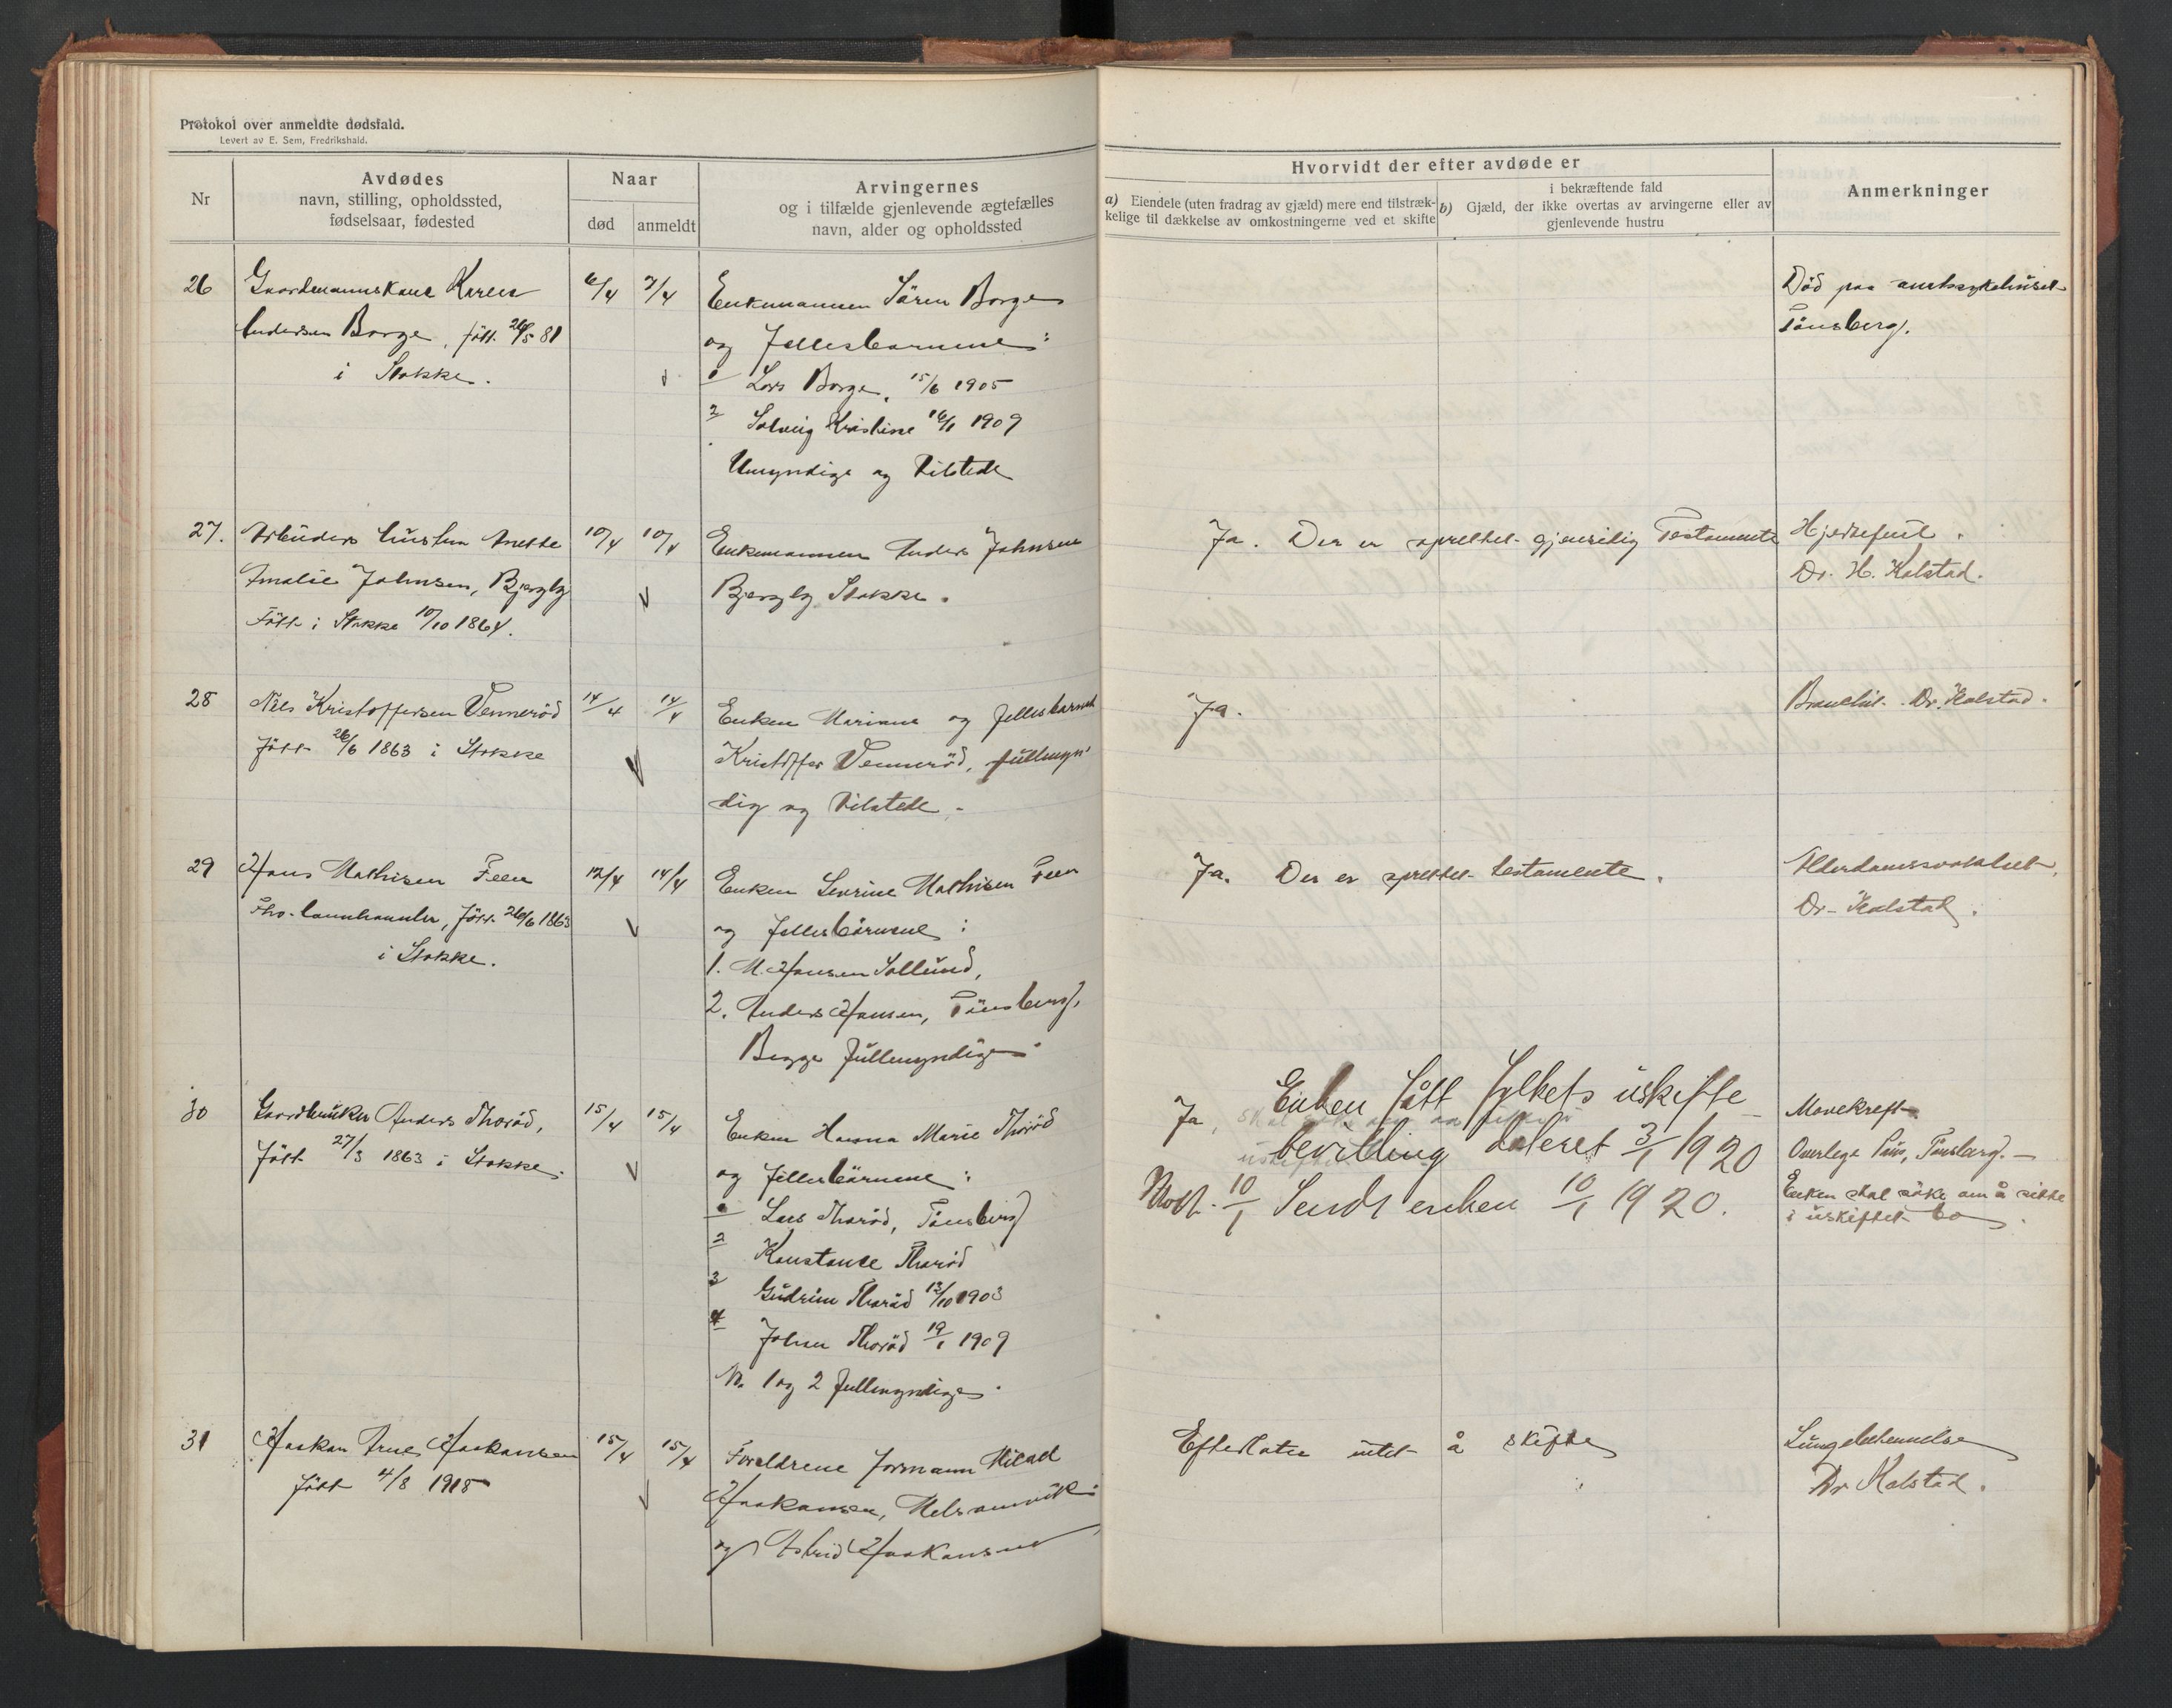 Protokol over anmeldte dødsfald.
Levert av E. Sem, Fredrikshald.
Nr
Avdødes
navn, stilling, opholdssted,
fødselsaar, fødested
Naar
død
anmeldt
Arvingernes
og i tilfælde gjenlevende ægtefælles
navn, alder og opholdssted
Hvorvidt der efter avdøde er
a) Eiendele (uten fradrag av gjæld) mere end tilstræk-
kelige til dækkelse av omkostningerne ved et skifte
i bekræftende fald
b) Gjæld, der ikke overtas av arvingerne eller av
gjenlevende hustru
Anmerkninger
26
Gaardmannskone Karen
Andersen Borge, født 26/5 81
i Stokke.
6/4 7/4
Enkemannen Sören Borge
og fellesbarnene:
1 Lars Borge, 15/6 1905
2 Solveig Kristine 16/1 1909
Umyndige og tilstede
Död paa amtssykehuset
Tönsberg.
27.
Arbeiders hustru Anette
Amalie Johnsen, Bjergby
Född i Stokke 10/10 1864.
10/4 10/4
Enkemannen Anders Johnsen
Bjergby Stokke.
Ja. Der er oprettet gjensidig Testamente
Hjertefeil.
Dr. H. Kalstad.
28
Nils Kristoffersen Venneröd
född 26/6 1863 i Stokke
14/4 14/4
Enken Mariane og fellesbarnet
Kristoffer Venneröd, fullmyn-
dig og tilstede.
Ja.
Dr. Kalstad.
29
Hans Mathisen Feen
født 26/6 1863
i Stokke.
12/4 14/4
Enken Severine Mathisen Feen
og fellesbörnene:
1. M. Hansen Sollund,
2. Anders Hansen, Tönsberg.
Begge fullmyndige.
Ja. Der er oprettet testamente.
Alderdomssvakhet,
Dr. Kalstad.
30
Gaardbruker Anders Thoröd,
født 27/3 1863 i Stokke.
15/4 15/4
Enken Hanna Marie Thoröd
og fellesbörnene:
1 Lars Thoröd, Tönsberg
2 Konstanse Thoröd
3 Gudrun Thoröd 13/10 1903
4 Johan Thoröd 19/1 1909
Nr. 1 og 2 fullmyndige.
Ja,
Enken fått fylkets uskifte
bevilling dateret 3/1 1920
Mott. 10/1 Sendt enken 10/1 1920.
Mavekreft.
Overlege Tönsberg.
Enken skal söke om å sitte
i uskiftet bo.
31
Haakon Arne Haakonsen
født 4/8 1918
15/4 15/4
Foreldrene formann
Haakonsen, Melsomvik
og Astrid Haakonsen
Efterlater intet å skifte
Lungebetennelse
Dr Kalstad.